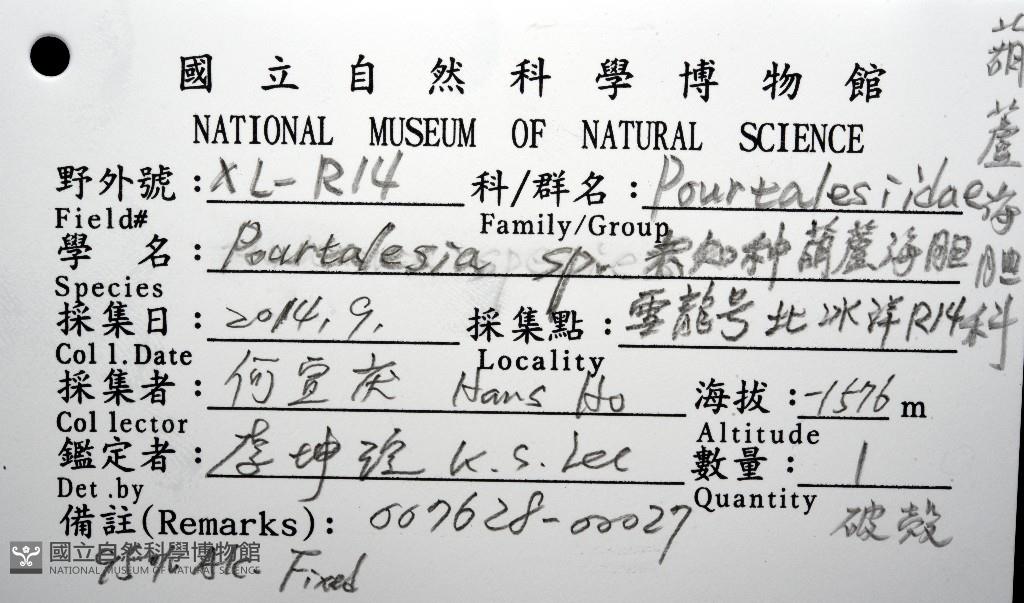 國立自然科學博物館
NATIONAL MUSEUM OF NATURAL SCIENCE
野外號：XL-R14
Field#
科/群名：Pourtalesiidae 葫蘆海胆科
Family/Group
學名：Pourtalesia sp. 未知种葫蘆海胆
Species
採集日：2014.9.
Coll.Date
採集點：雪龍号北冰洋R14
Locality
採集者：何宣庆 Hans Ho
Collector
海拔：-1576 m
Altitude
鑑定者：李坤瑄 K.S. Lee
Det.by
數量：1
Quantity
備註(Remarks)：007628-00027
破殼
95% Alc. Fixed
國立自然科學博物館
NATIONAL MUSEUM OF NATURAL SCIENCE